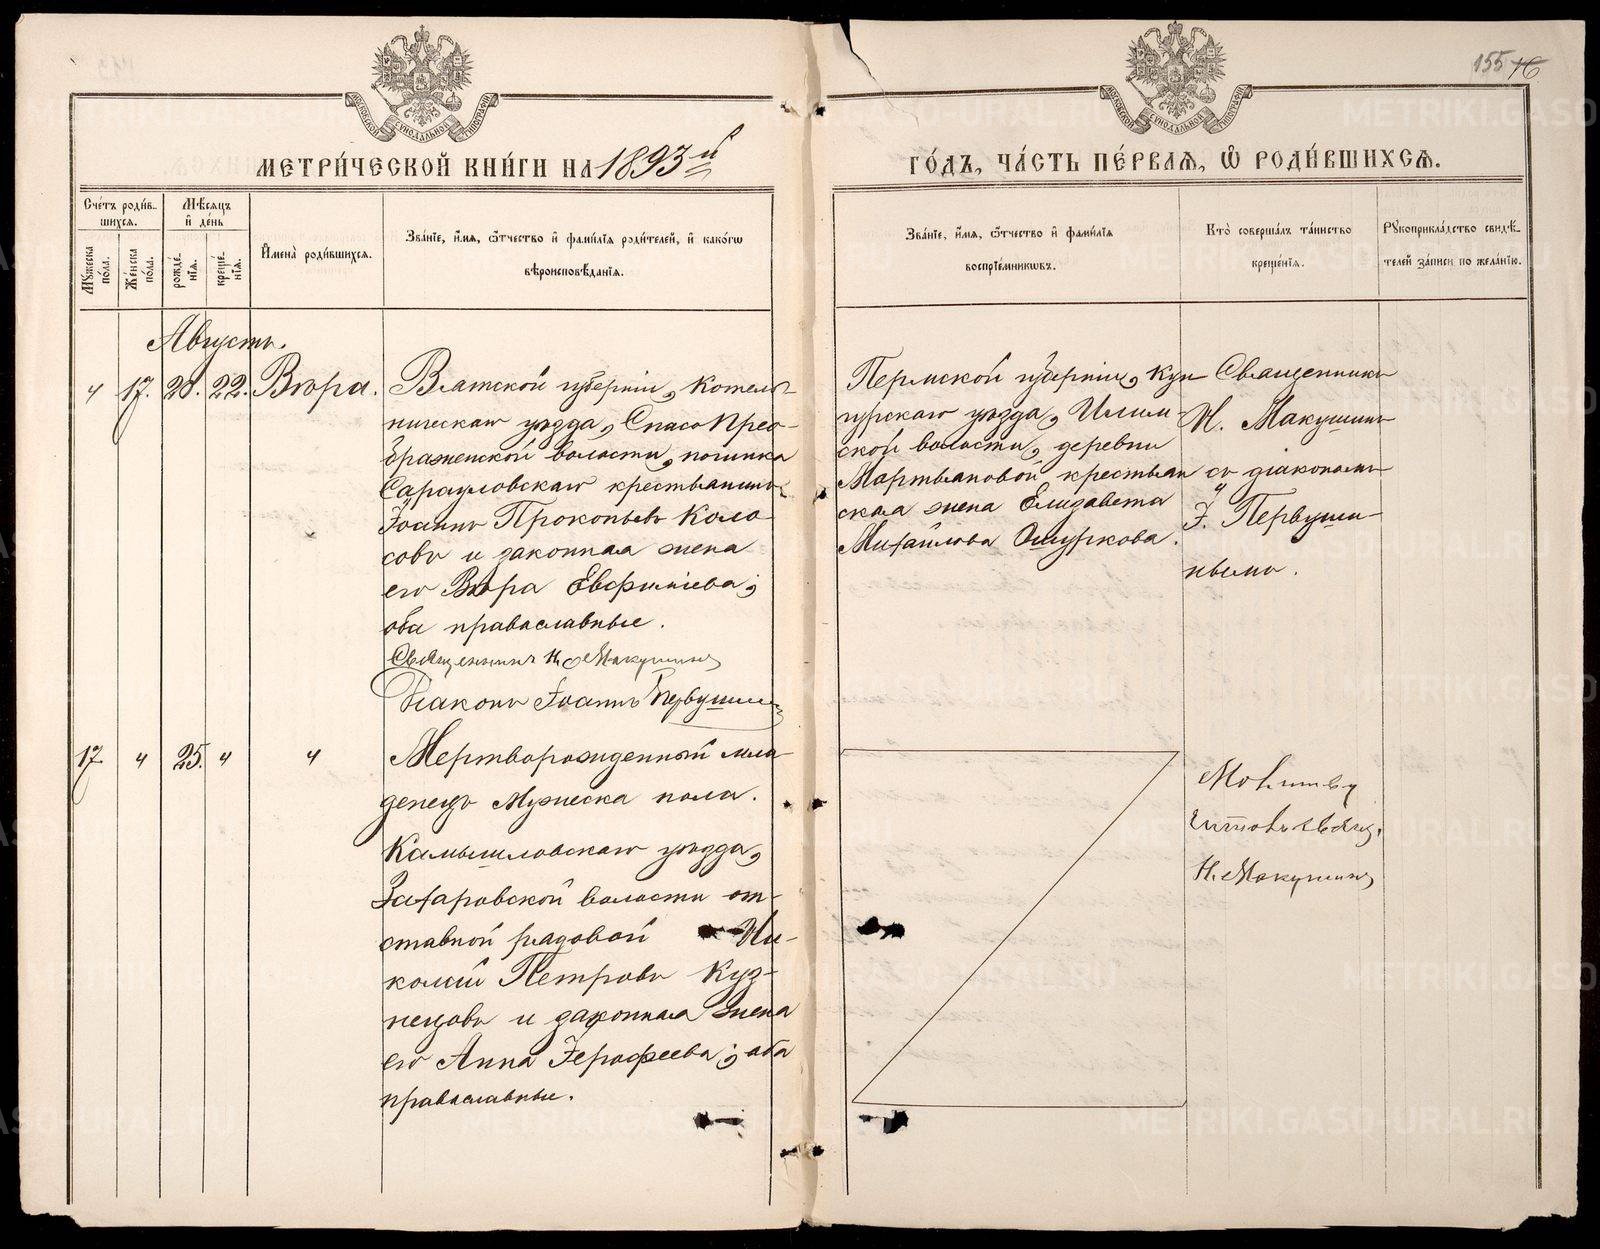 155 16
МОСКОВСКОЙ СѴНОДАЛЬНОЙ ТИПОГРАФІИ
МОСКОВСКОЙ СѴНОДАЛЬНОЙ ТИПОГРАФІИ
МЕТРИ́ЧЕСКОЙ КНИ́ГИ НА 1893й
ГО́ДЪ, ЧА́СТЬ ПЕ́РВАѦ, Ѡ҆ РОДИ́ВШИХСѦ.
Сче́тъ роди́в-
шихсѧ.
Мѣ́сѧцъ
и҆ де́нь
Мꙋ́жеска
по́ла.
Же́нска
по́ла.
рожде́-
нїѧ.
креще́-
нїѧ.
И҆мена̀ роди́вшихсѧ.
Зва́нїе, и҆́мѧ, ѻ҆́тчество и҆ фами́лїѧ роди́телей, и҆ како́гѡ
вѣроисповѣ́данїѧ.
Зва́нїе, и҆́мѧ, ѻ҆́тчество и҆ фами́лїѧ
воспрїе́мникѡвъ.
Кто̀ соверша́лъ та́инство
креще́нїѧ.
Рꙋкоприкла́дство свидѣ́-
телей за́писи по жела́нїю.
Августъ.
" 17. 20. 22. Вѣра.
Вятской губерніи, Котель-
ническаго уѣзда, Спасо Прео-
браженской волости, починка
Сарауловскаго крестьянинъ
Іоаннъ Прокопьевъ Коло
совъ и законная жена
его Вѣра Евфиміева;
оба православные.
Священникъ Н. Макушинъ
Діаконъ Іоаннъ Первушинъ
Пермской губерніи, Кун-
гурскаго уѣзда, Илим-
ской волости, деревни
Мартьяновой крестьян
ская жена Елизавета
Михайлова Ошуркова.
Священникъ
Н. Макушинъ
съ діакономъ
І. Первуши-
нымъ.
17 " 25. " "
Мертворожденный мла
денецъ мужеска пола.
Камышловскаго уѣзда,
Захаровской волости от-
ставной рядовой Ни-
колай Петровъ Куз-
нецовъ и законная жена
его Анна Іерофеева; оба
православные.
Молитву
читовъ Свящ.
Н. Макушинъ
METRIKI.GASO-URAL.RU